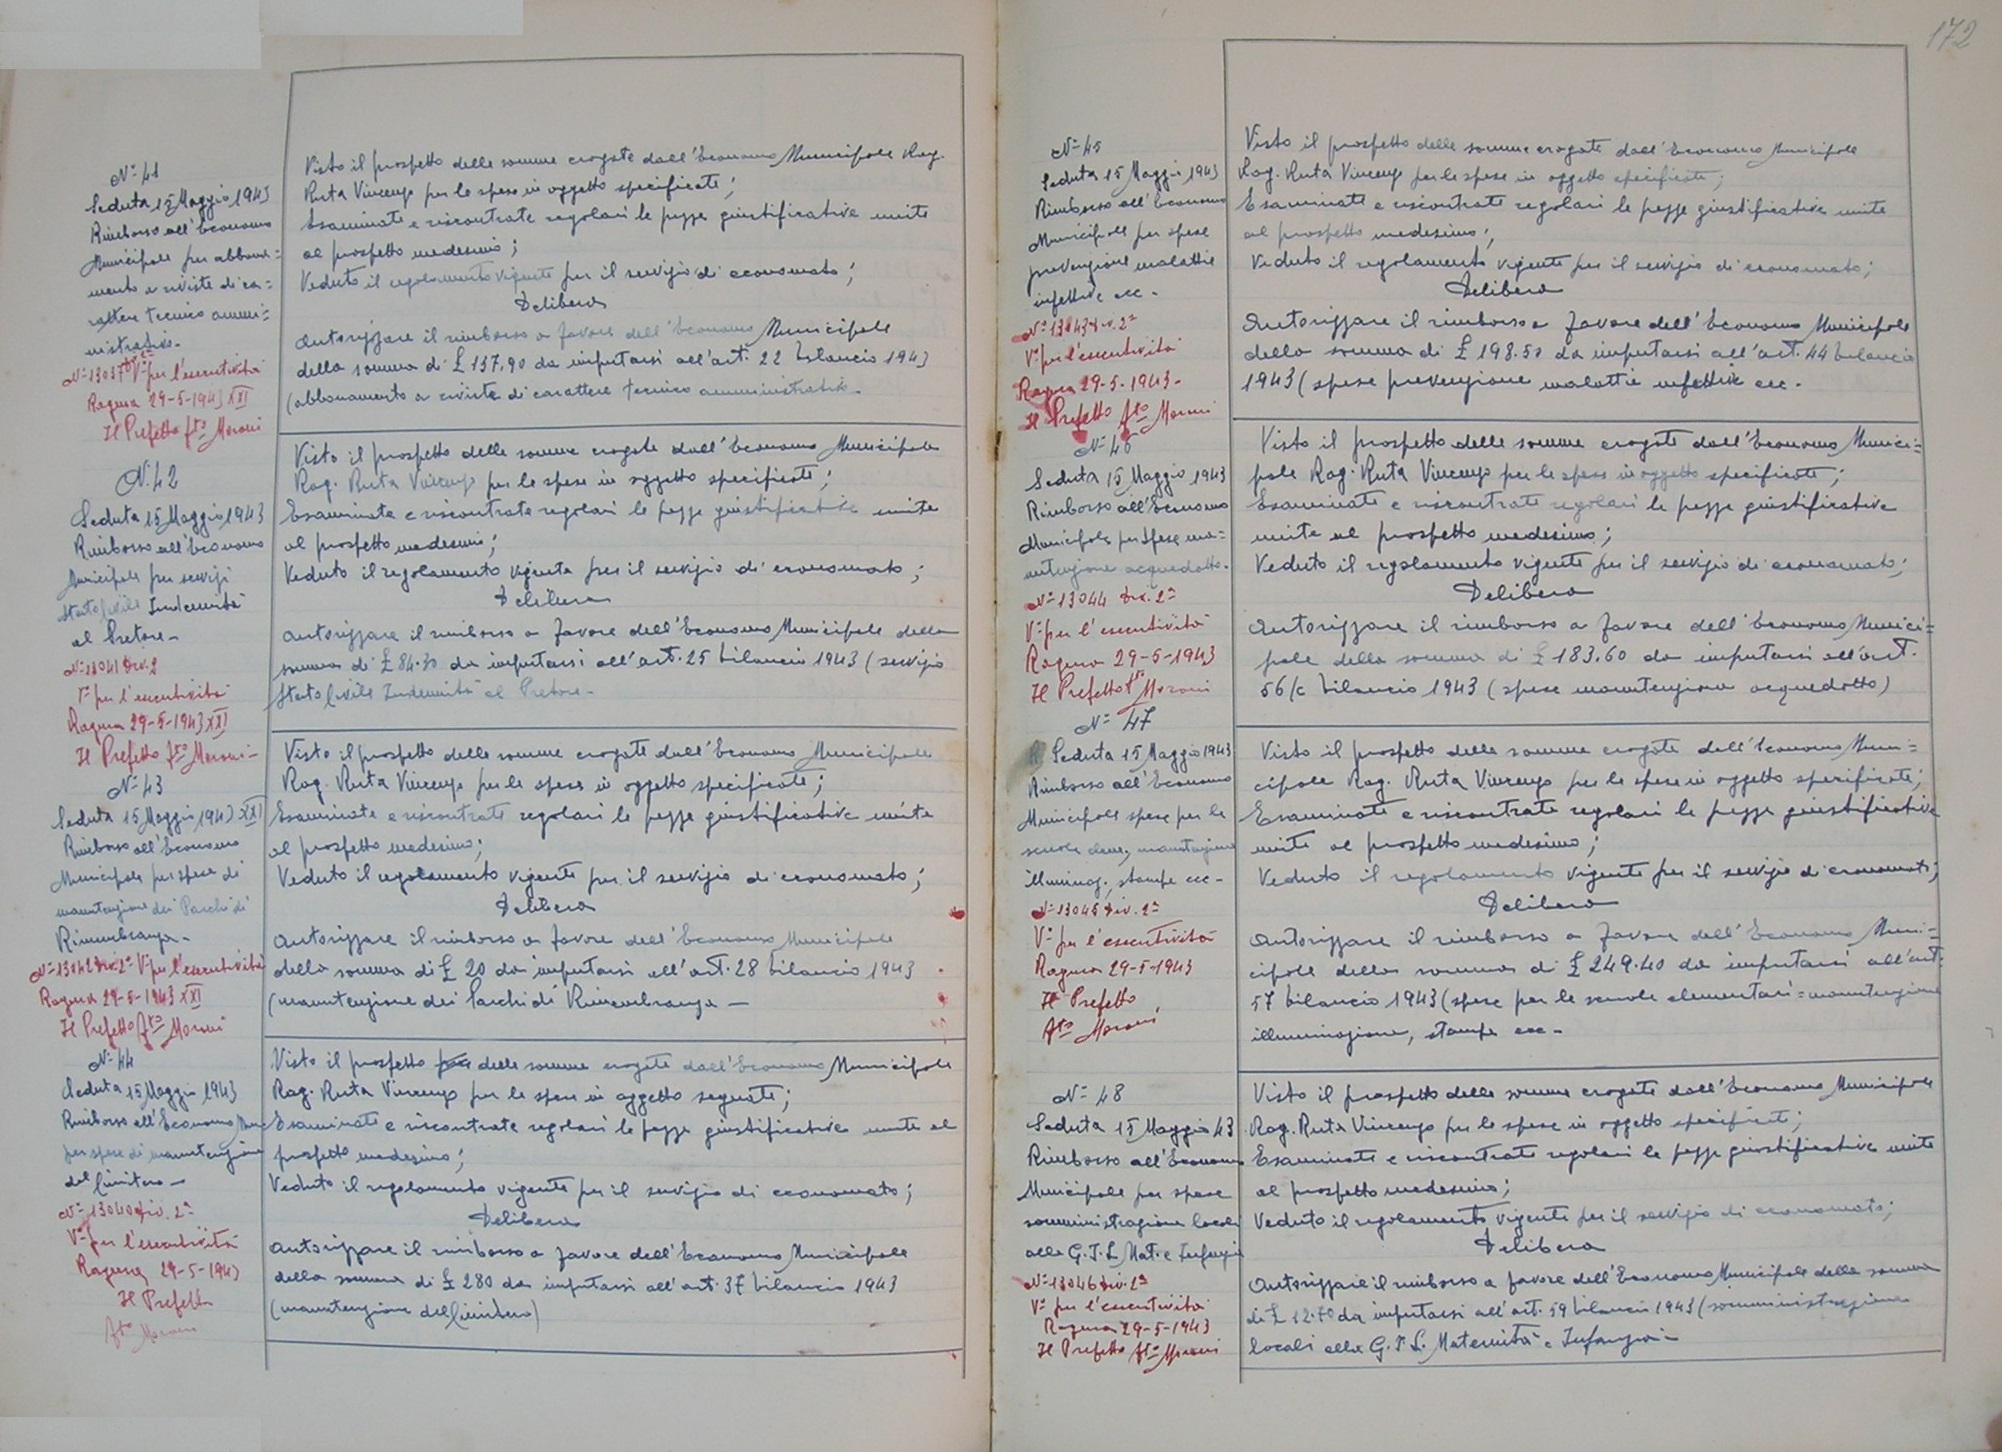 172
N= 41
Seduta 15 Maggio 1943
Rimborso all'Economo
Municipale per abbona=
mento a riviste di ca=
rattere tecnico ammi=
nistrativo-
N=13037 V= per l'esecutività
Ragusa 29-5-1943 XXI
Il Prefetto fto Moroni
Visto il prospetto delle somme erogate dall'Economo Municipale Rag.
Ruta Vincenzo per le spese in oggetto specificate;
Esaminate e riscontrate regolari le pezze giustificative unite
al prospetto medesimo;
Veduto il regolamento vigente per il servizio di economato;
Delibera
Autorizzare il rimborso a favore dell'Economo Municipale
della somma di £ 137,90 da imputarsi all'art. 22 bilancio 1943
(abbonamento a riviste di carattere tecnico amministrativo-
N. 42
Seduta 15 Maggio 1943
Rimborso all'Economo
Municipale per servizi
Stato Civile Indennità
al Pretore-
N=13041 Div. 2
V= per l'esecutività
Ragusa 29-5-1943 XXI
Il Prefetto fto Moroni-
Visto il prospetto delle somme erogate dall'Economo Municipale
Rag. Ruta Vincenzo per le spese in oggetto specificate;
Esaminate e riscontrate regolari le pezze giustificative unite
al prospetto medesimo;
Veduto il regolamento vigente per il servizio di economato;
Delibera
Autorizzare il rimborso a favore dell'Economo Municipale della
somma di £ 84.30 da imputarsi all'art. 25 bilancio 1943 (servizio
Stato Civile Indennità al Pretore-
N= 43
Seduta 15 Maggio 1943 XXI
Rimborso all'Economo
Municipale per spese di
manutenzione dei Parchi di
Rimembranza-
N=13042 Div. 2= V= per l'esecutività
Ragusa 29-5-1943 XXI
Il Prefetto fto Moroni
Visto il prospetto delle somme erogate dall'Economo Municipale
Rag. Ruta Vincenzo per le spese in oggetto specificate;
Esaminate e riscontrate regolari le pezze giustificative unite
al prospetto medesimo;
Veduto il regolamento vigente per il servizio di economato;
Delibera
Autorizzare il rimborso a favore dell'Economo Municipale
della somma di £ 20 da imputarsi all'art. 28 bilancio 1943
(manutenzione dei Parchi di Rimembranza-
N= 44
Seduta 15 Maggio 1943
Rimborso all'Economo Mun
per spese di manutenzione
del Cimitero-
N= 13040 Div. 2=
V= per l'esecutività
Ragusa 29-5-1943
Il Prefetto
fto Moroni
Visto il prospetto delle somme erogate dall'Economo Municipale
Rag. Ruta Vincenzo per le spese in oggetto segnate;
Esaminate e riscontrate regolari le pezze giustificative unite al
prospetto medesimo;
Veduto il regolamento vigente per il servizio di economato;
Delibera
Autorizzare il rimborso a favore dell'Economo Municipale
della somma di £ 280 da imputarsi all'art. 37 bilancio 1943
(manutenzione del Cimitero)
N= 45
Seduta 15 Maggio 1943
Rimborso all'Economo
Municipale per spese
prevenzione malattie
infettive ecc-
N= 13043 Div. 2=
V= per l'esecutività
Ragusa 29-5-1943-
Il Prefetto fto Moroni
Visto il prospetto delle somme erogate dall'Economo Municipale
Rag. Ruta Vincenzo per le spese in oggetto specificate;
Esaminate e riscontrate regolari le pezze giustificative unite
al prospetto medesimo;
Veduto il regolamento vigente per il servizio di economato;
Delibera
Autorizzare il rimborso a favore dell'Economo Municipale
della somma di £ 198.50 da imputarsi all'art. 44 bilancio
1943 (spese prevenzione malattie infettive ecc-
N= 46
Seduta 15 Maggio 1943
Rimborso all'Economo
Municipale per spese ma=
nutenzione acquedotto-
N= 13044 Div. 2=
V= per l'esecutività
Ragusa 29-5-1943
Il Prefetto fto Moroni
Visto il prospetto delle somme erogate dall'Economo Munici=
pale Rag. Ruta Vincenzo per le spese in oggetto specificate;
Esaminate e riscontrate regolari le pezze giustificative
unite al prospetto medesimo;
Veduto il regolamento vigente per il servizio di economato;
Delibera
Autorizzare il rimborso a favore dell'Economo Munici=
pale della somma di £ 183.60 da imputarsi all'art.
56/c bilancio 1943 (spese manutenzione acquedotto)
N= 47
Seduta 15 Maggio 1943
Rimborso all'Economo
Municipale spese per le
scuole elem, manutenzione
illuminaz., stampe ecc-
N= 13045 Div. 2=
V= per l'esecutività
Ragusa 29-5-1943
Il Prefetto
fto Moroni
Visto il prospetto delle somme erogate dall'Economo Muni=
cipale Rag. Ruta Vincenzo per le spese in oggetto specificate;
Esaminate e riscontrate regolari le pezze giustificative
unite al prospetto medesimo;
Veduto il regolamento vigente per il servizio di economato;
Delibera
Autorizzare il rimborso a favore dell'Economo Muni=
cipale della somma di £ 249.40 da imputarsi all'art.
57 bilancio 1943 (spese per le scuole elementari=manutenzione
illuminazione, stampe ecc-
N= 48
Seduta 15 Maggio 43
Rimborso all'Economo
Municipale per spese
somministrazione locali
alla G.I.L Mat. e Infanzia
N=13046 Div. 2=
V= per l'esecutività
Ragusa 29-5-1943
Il Prefetto fto Moroni
Visto il prospetto delle somme erogate dall'Economo Municipale
Rag. Ruta Vincenzo per le spese in oggetto specificate;
Esaminate e riscontrate regolari le pezze giustificative unite
al prospetto medesimo;
Veduto il regolamento vigente per il servizio di economato;
Delibera
Autorizzare il rimborso a favore dell'Economo Municipale della somma
di £ 12.70 da imputarsi all'art. 59 bilancio 1943 (somministrazione
locali alla G.I.L. Maternità e Infanzia-